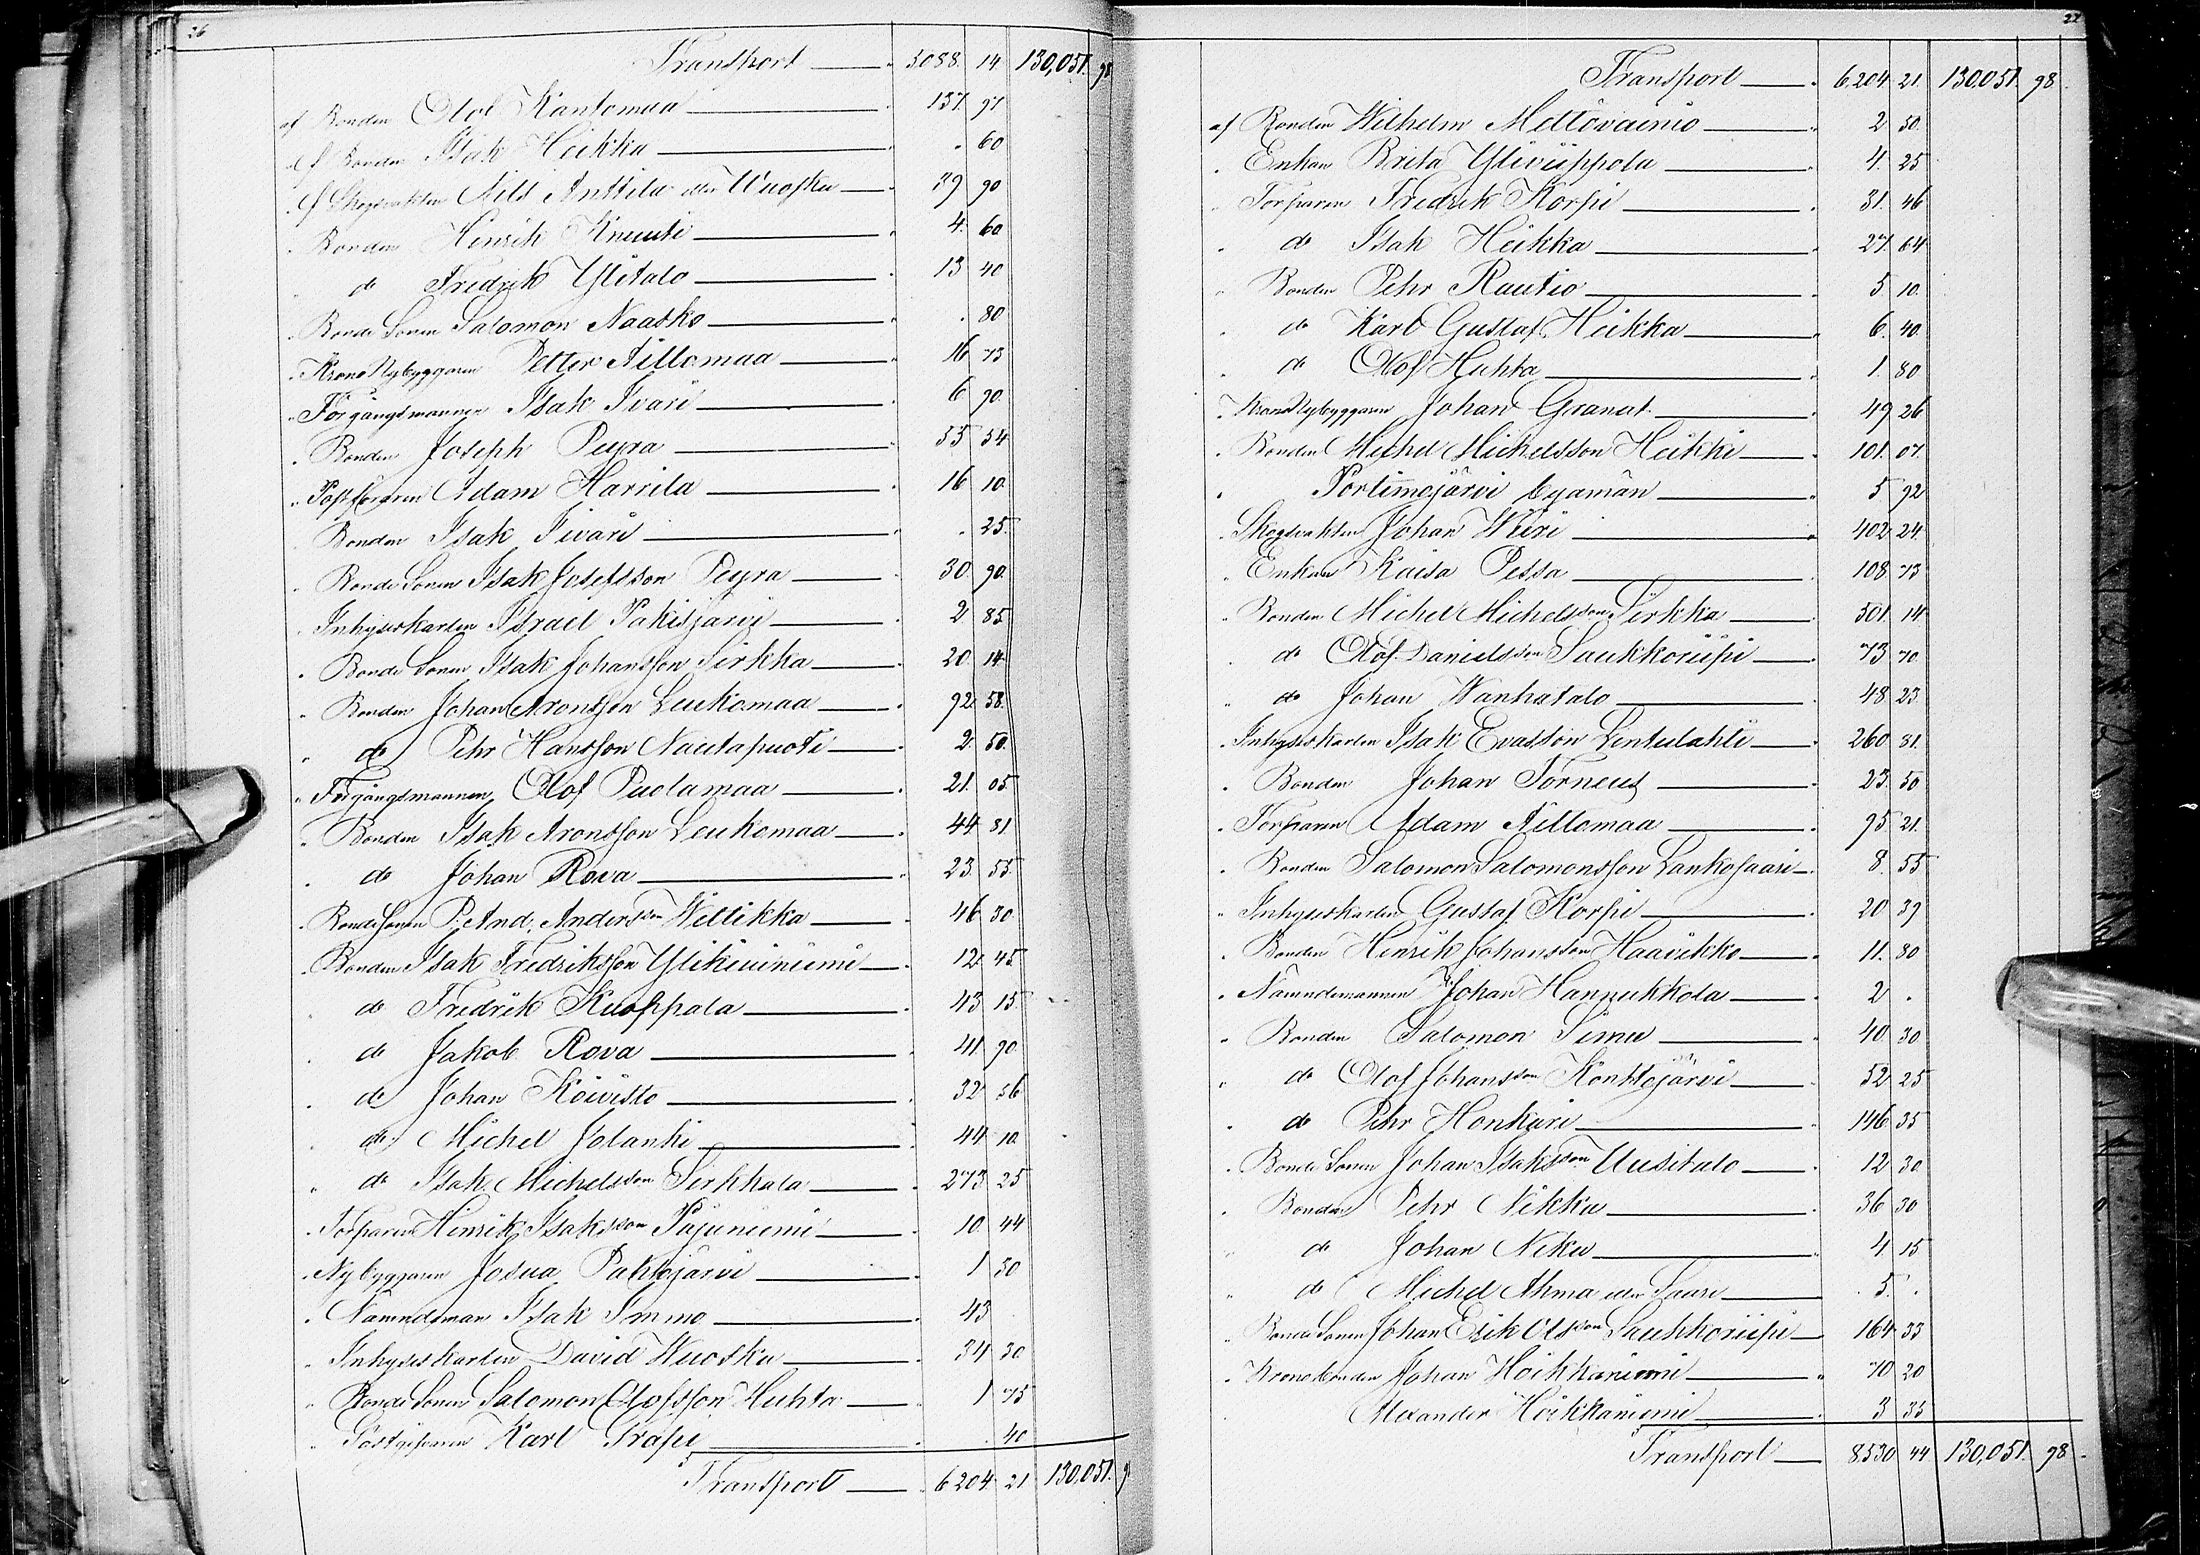 26
Transport 5088. 14 130,051. 98
af Bonden Olof Kantomaa 137 97
af Bonden Isak Heikka . 60
af Skogsvakten Nils Anttila eller Wuosku 39 90
" Bonden Henrik Knuuti 4. 60
" do Fredrik Ylitalo 13 40
Bonde Sonen Salomon Naasko . 80
" Krono Nybyggaren Petter Aillomaa 16 73
" Förgångsmannen Isak Ivari 6 90
" Bonden Joseph Peura 55 54
" Postföraren Adam Harrila 16 10
" Bonden Isak Iivari . 25
" Bonde Sonen Isak Josefsson Peura 30 90
" Inhyseskarlen Israel Pakisjarvi 2 85
" Bonde Sonen Isak Johansson Sirkka 20 14
" Bonden Johan Aronsson Leukomaa 92 58
" do Pehr Hansson Nautapuoti 2 50
" Förgångsmannen Olof Puolamaa 21. 05
" Bonden Isak Aronsson Leukomaa 44 81
" do Johan Rova 23 55
" BondeSonen P. And. Andersson Willikka 46 30
" Bonden Isak Fredriksson Ylikiviniemi 12 45
" do Fredrik Kuoppala 43 15
" do Jakob Rova 41 90
" do Johan Koivisto 32 56
" do Michel Jolanki 44 10
" do Isak Michelsson Sirkkala 273 25
" Torparen Hinrik Isaksson Pajuniemi 10 44
" Nybyggaren Josua Pakisjarvi 1 50
" Nämndeman Isak Immo 43
" Inhyseskarlen David Wuosku 34 30
" Bonde Sonen Salomon Olofsson Huhta 1 75
" Postgifvaren Karl Träpi . 40
Transport 6204 21 130,051. 9
27
Transport 6,204 21. 130,051. 98
af Bonden Wilhelm Mettovainio 2 30
" Enkan Brita Yliviippola 4. 25
" Torparen Fredrik Korpi 31. 46
" do Isak Heikka 27. 64
" Bonden Pehr Rautio 5 10
" do Karl Gustaf Heikka 6. 40
" do Olof Huhta 1. 80
" Krono Nybyggaren Johan Granat 49 26
" Bonden Michel Michelsson Heikki 101. 07
" Portimojärvi byamän 5 92
" Skogsvakten Johan Wiiri 402 24
" Enkan Kaisa Pessa 108 73
" Bonden Michel Michelsson Sirkka 301. 14
" do Olof Danielsson Saukkoriipi 73 70
" do Johan Wanhatalo 48 23
" Inhyseskarlen Isak Evasson Lentulahti 260 81.
" Bonden Johan Torneus 23. 30
" Torparen Adam Aillomaa 95 21.
" Bonden Salomon Salomonsson Lankosaari 8. 55
" Inhyseskarlen Gustaf Korpi 20 39
" Bonden Henrik Johansson Haavikko 11. 80
" Nämndemannen Johan Hannukkola 2 .
" Bonden Salomon Simu 40. 30
" do Olof Johansson Konttojärvi 52 25
" do Pehr Honkuri 146 35
" Bonde Sonen Johan Isaksson Uusitalo 12 30
" Bonden Pehr Nikku 36 30
" do Johan Niku 4. 15
" do Michel Ahma eller Saari 5. .
" Bonde Sonen Johan Erik Olsson Saukkoriipi 164 33
" Kronobonden Johan Hoikkaniemi 70 20
Alexander Hoikkaniemi 3 35
Transport 8530 44 130,051. 98